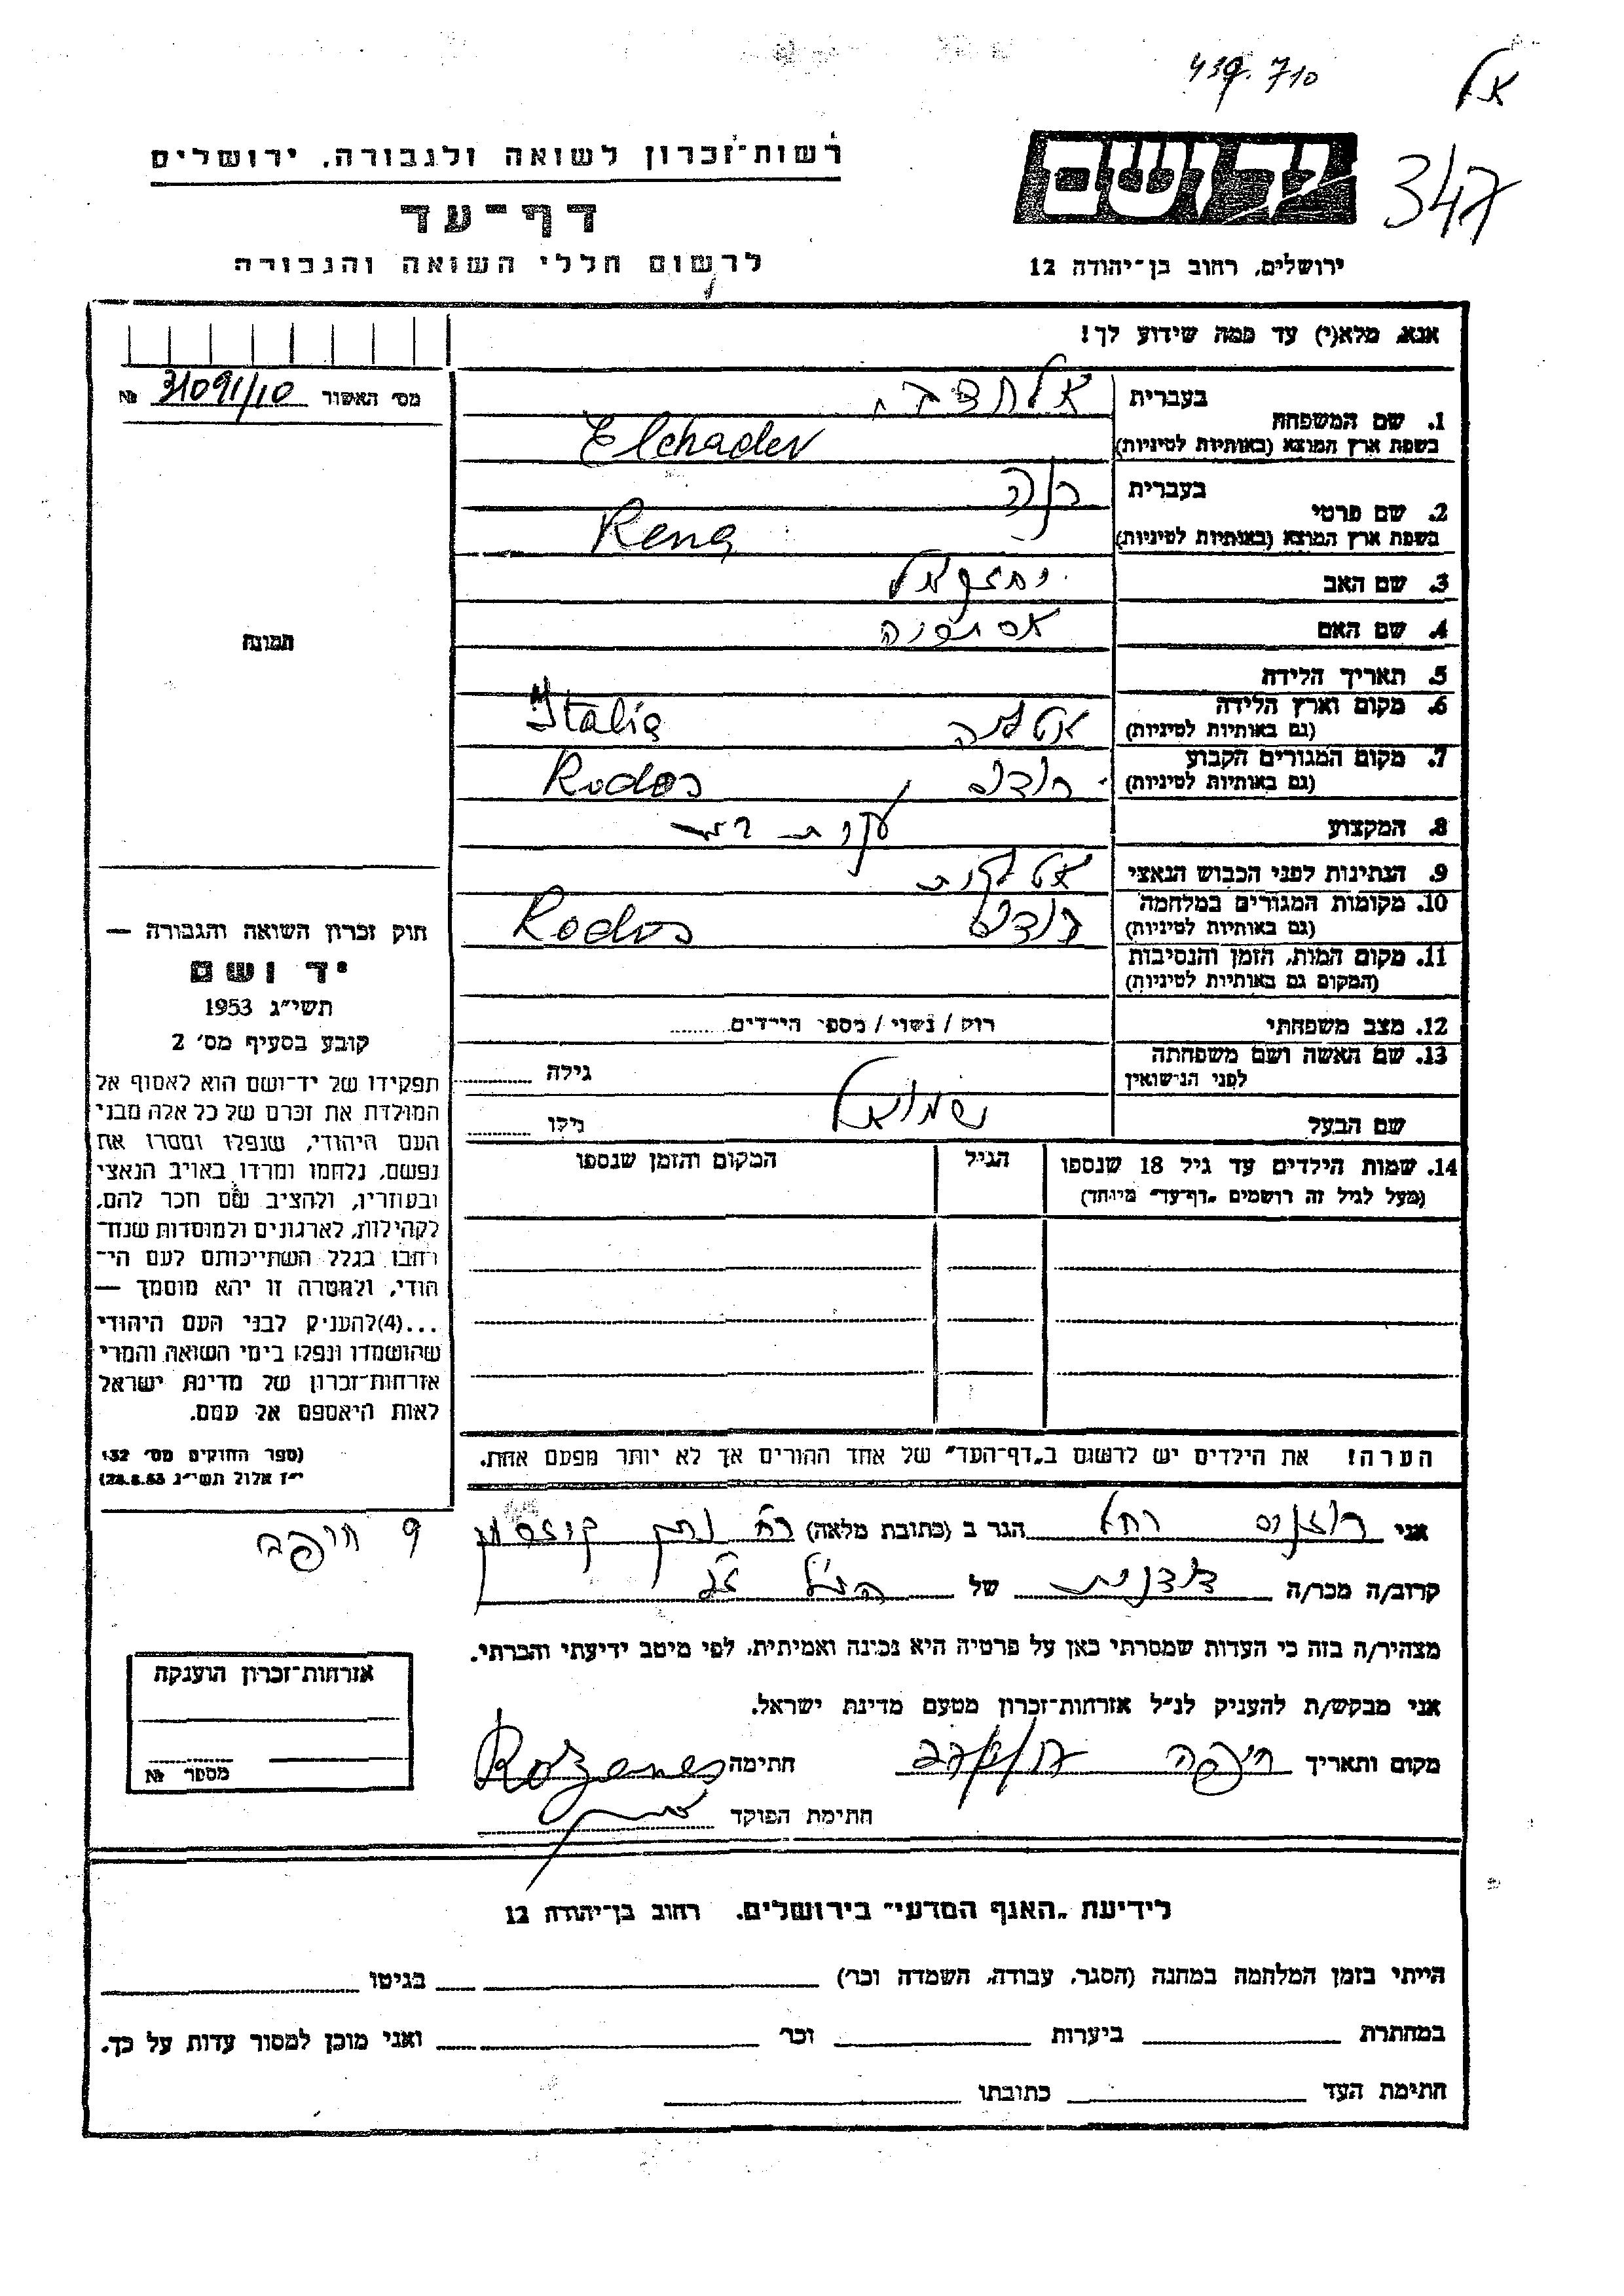 439.710
אל
347
יד ושם
רשות־זכרון לשואה ולגבורה, ירושלים
דף־עד
לרשום חללי השואה והגבורה
ירושלים, רחוב בן־יהודה 12
אנא, מלא(י) עד כמה שידוע לך!
מס׳ האשור 31091/10 №
1. שם המשפחה
בעברית
בשפת ארץ המוצא (באותיות לטיניות) Elchadev
2. שם פרטי
בעברית רנה
בשפת ארץ המוצא (באותיות לטיניות) Rena
3. שם האב יחזקאל
4. שם האם
5. תאריך הלידה
6. מקום וארץ הלידה איטליה Italia
(גם באותיות לטיניות)
7. מקום המגורים הקבוע רודוס Rodos
(גם באותיות לטיניות)
8. המקצוע עקרת בית
9. הנתינות לפני הכבוש הנאצי איטלקית
10. מקומות המגורים במלחמה רודוס Rodos
(גם באותיות לטיניות)
11. מקום המות, הזמן והנסיבות
(המקום גם באותיות לטיניות)
12. מצב משפחתי רוק / נשוי / מספר הילדים
13. שם האשה ושם משפחתה
לפני הנישואין
גילה
שם הבעל שמואל גילו
14. שמות הילדים עד גיל 18 שנספו
(מעל לגיל זה רושמים „דף־עד״ מיוחד)
הגיל
המקום והזמן שנספו
הערה! את הילדים יש לרשום ב„דף־העד״ של אחד ההורים אך לא יותר מפעם אחת.
תמונה
חוק זכרון השואה והגבורה —
יד ושם
תשי״ג 1953
קובע בסעיף מס׳ 2
תפקידו של יד־ושם הוא לאסוף אל
המולדת את זכרם של כל אלה מבני
העם היהודי, שנפלו ומסרו את
נפשם, נלחמו ומרדו באויב הנאצי
ובעוזריו, ולהציב שם וזכר להם,
לקהילות, לארגונים ולמוסדות שנח־
רבו בגלל השתייכותם לעם הי־
הודי, ולמטרה זו יהא מוסמך —
...(4) להעניק לבני העם היהודי
שהושמדו ונפלו בימי השואה והמרי
אזרחות־זכרון של מדינת ישראל
לאות היאספם אל עמם.
(ספר החוקים מס׳ 132
י״ז אלול תשי״ג 28.8.53)
אני רוזאנס רחל הגר ב (כתובת מלאה) רח נתן
9 חיפה
קרוב/ה מכר/ה דודנית של הנ״ל
מצהיר/ה בזה כי העדות שמסרתי כאן על פרטיה היא נכונה ואמיתית, לפי מיטב ידיעתי והכרתי.
אני מבקש/ת להעניק לנ״ל אזרחות־זכרון מטעם מדינת ישראל.
מקום ותאריך חיפה חתימה Rozanes
חתימת הפוקד
אזרחות־זכרון הוענקה
מספר №
לידיעת „האגף המדעי״ בירושלים, רחוב בן־יהודה 12
הייתי בזמן המלחמה במחנה (הסגר, עבודה, השמדה וכר׳) בגיטו
במחתרת ביערות וכר׳ ואני מוכן למסור עדות על כך.
חתימת העד כתובתו